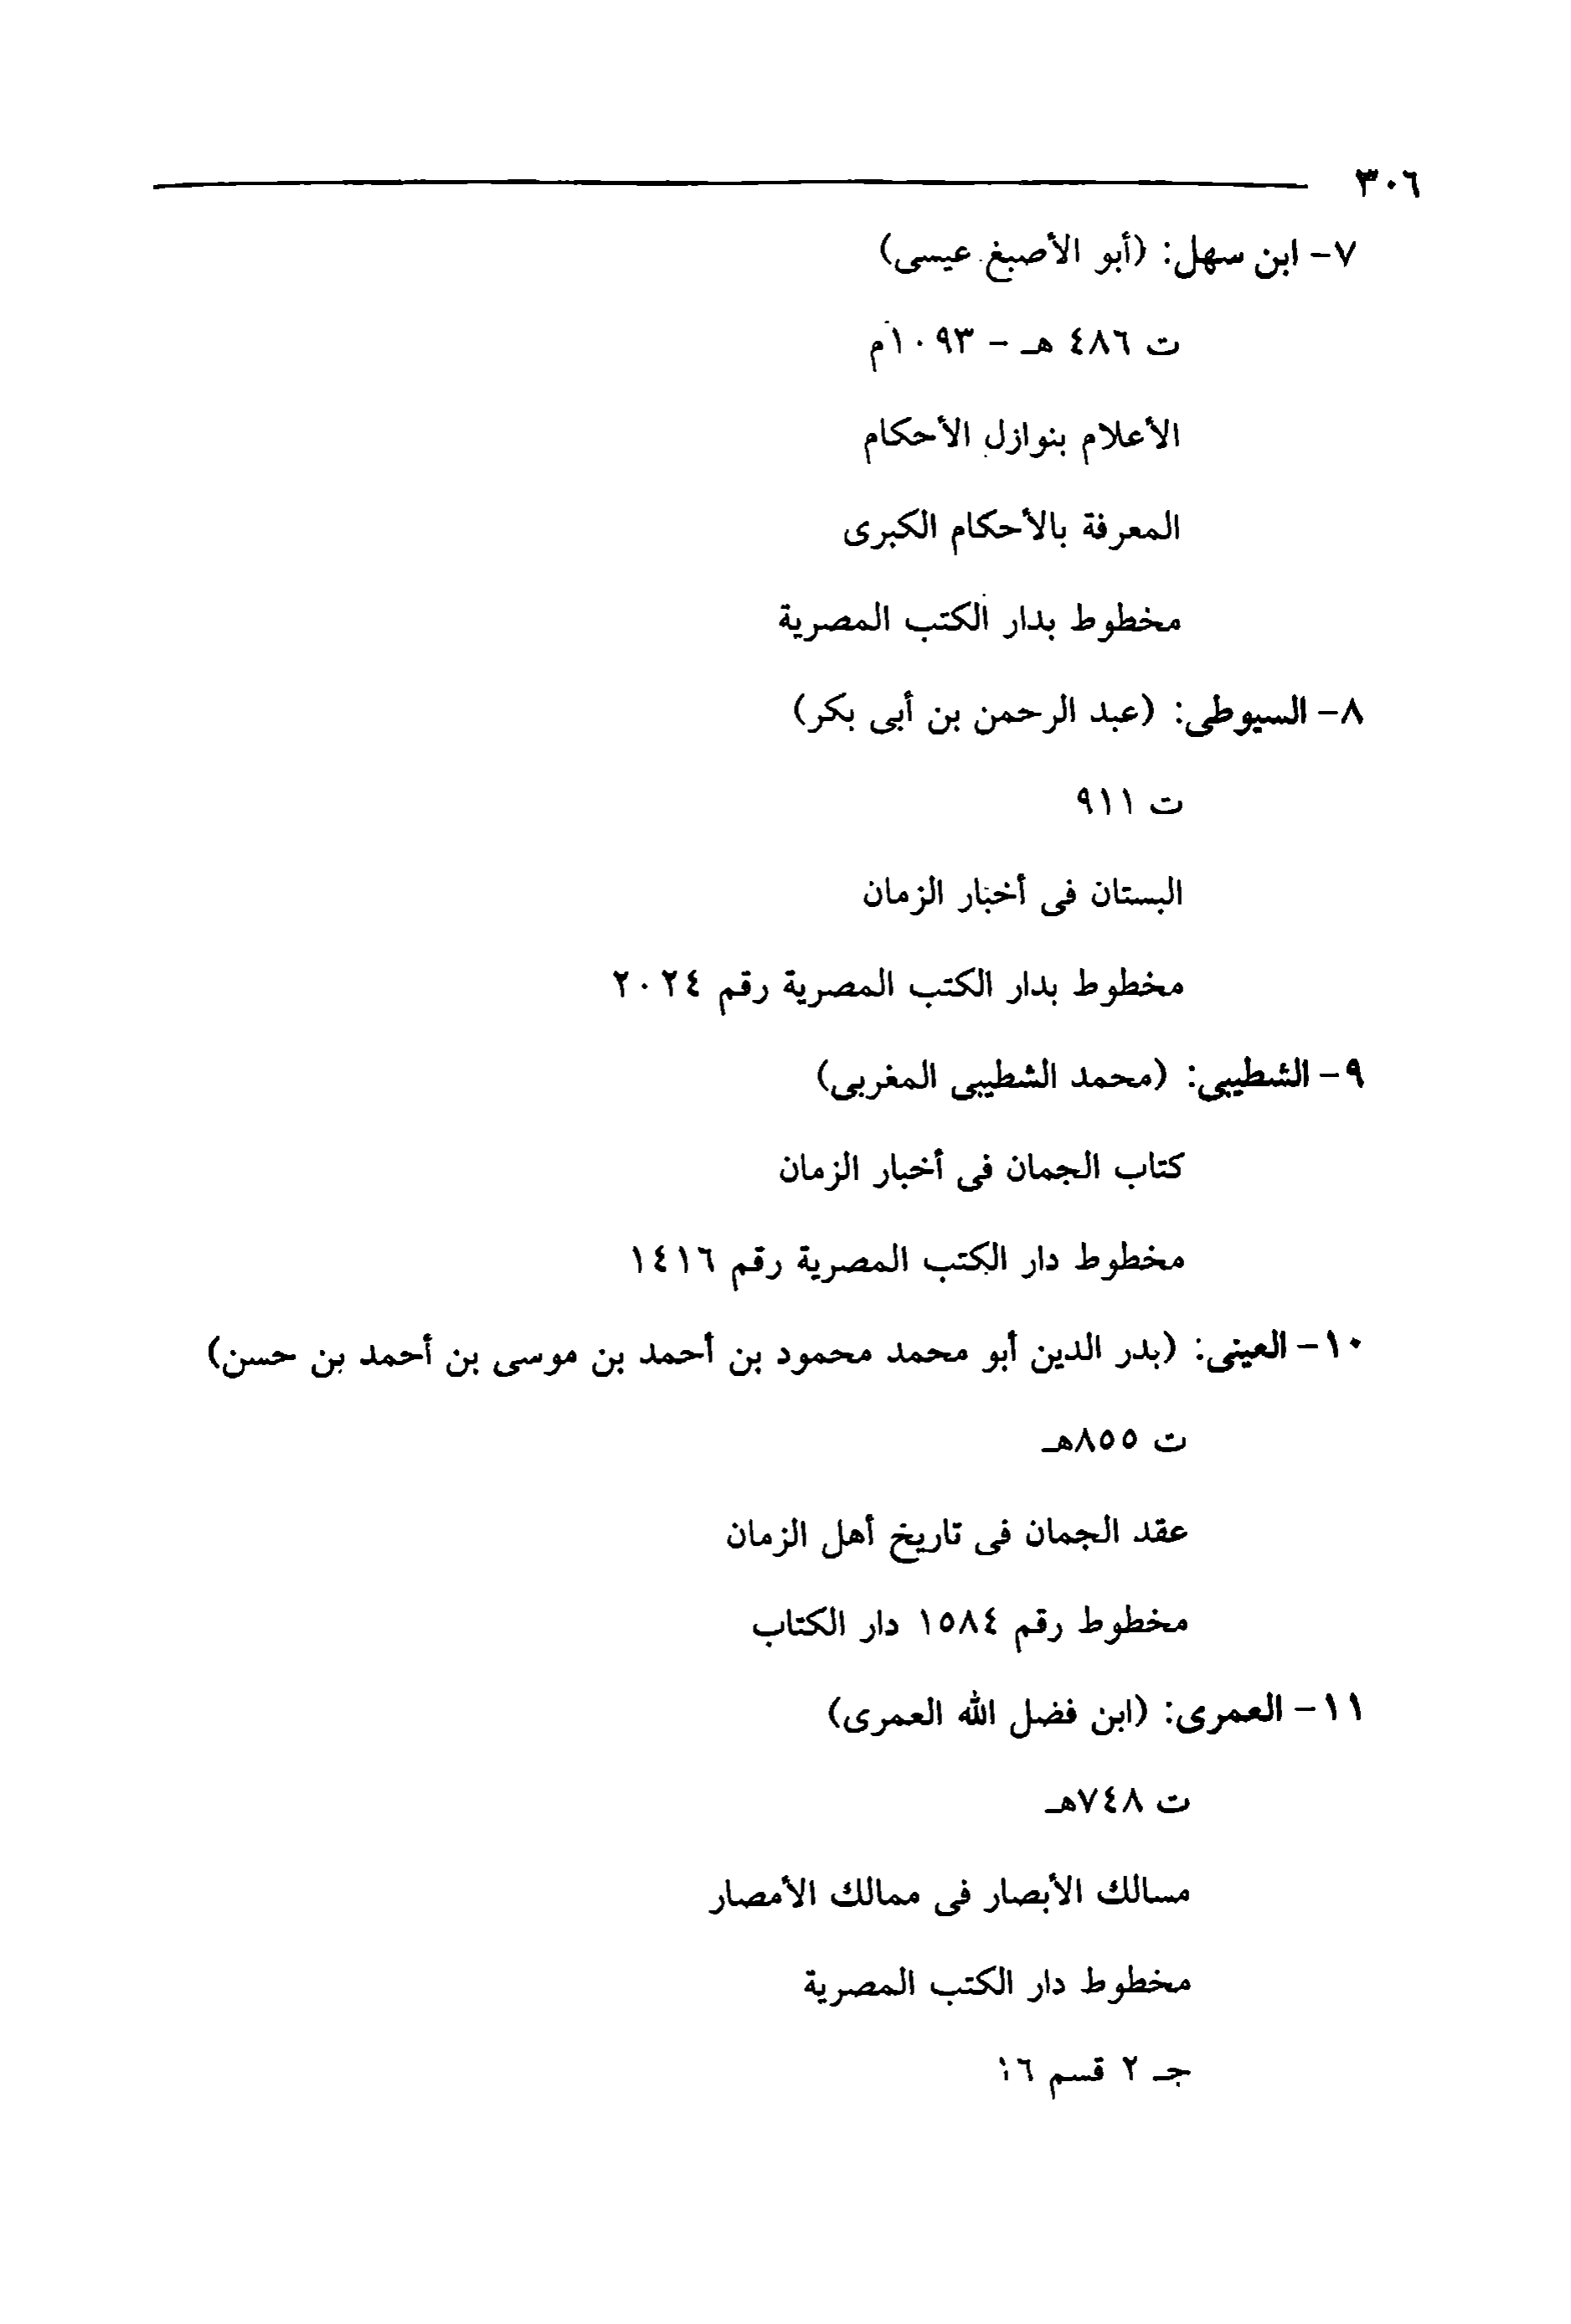 ٣٠٦
٧- ابن سهل: (أبو الأصبغ عيسى)
ت ٤٨٦ هـ - ١٠٩٣م
الأعلام بنوازل الأحكام
المعرفة بالأحكام الكبرى
مخطوط بدار الكتب المصرية
٨- السيوطى: (عبد الرحمن بن أبى بكر)
ت ٩١١
البستان فى أخبار الزمان
مخطوط بدار الكتب المصرية رقم ٢٠٢٤
٩- الشطيبى: (محمد الشطيبى المغربى)
كتاب الجمان فى أخبار الزمان
مخطوط دار الكتب المصرية رقم ١٤١٦
١٠- العينى: (بدر الدين أبو محمد محمود بن أحمد بن موسى بن أحمد بن حسن)
ت ٨٥٥هـ
عقد الجمان فى تاريخ أهل الزمان
مخطوط رقم ١٥٨٤ دار الكتاب
١١- العمرى: (ابن فضل الله العمرى)
ت ٧٤٨هـ
مسالك الأبصار فى ممالك الأمصار
مخطوط دار الكتب المصرية
جـ ٢ قسم ١٦